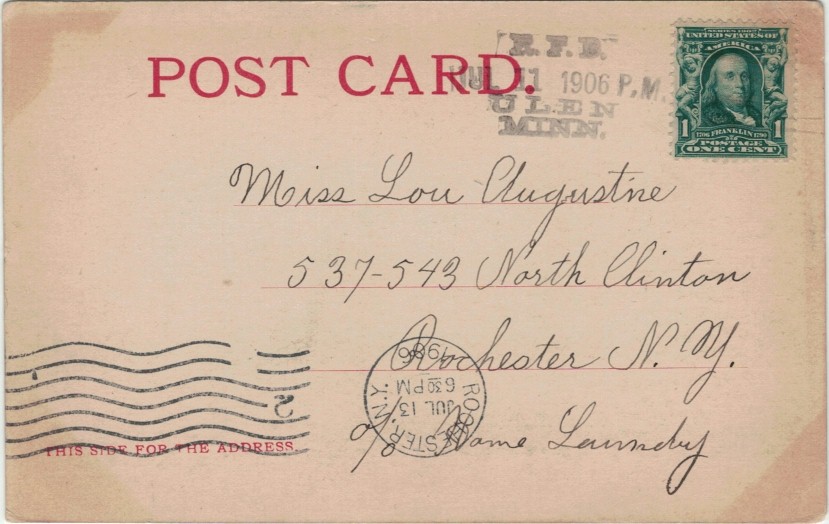 POST CARD.
R. F. D.
JUL 11 1906 P.M.
ULEN
MINN.
SERIES 1902
UNITED STATES OF
AMERICA
1 1706 FRANKLIN 1790 1
POSTAGE
ONE CENT
Miss Lou Augustine
537-543 North Clinton
Rochester N. Y.
c/o Home Laundry
ROCHESTER, N.Y.
JUL 13
6 30 PM
1906
2
THIS SIDE FOR THE ADDRESS.